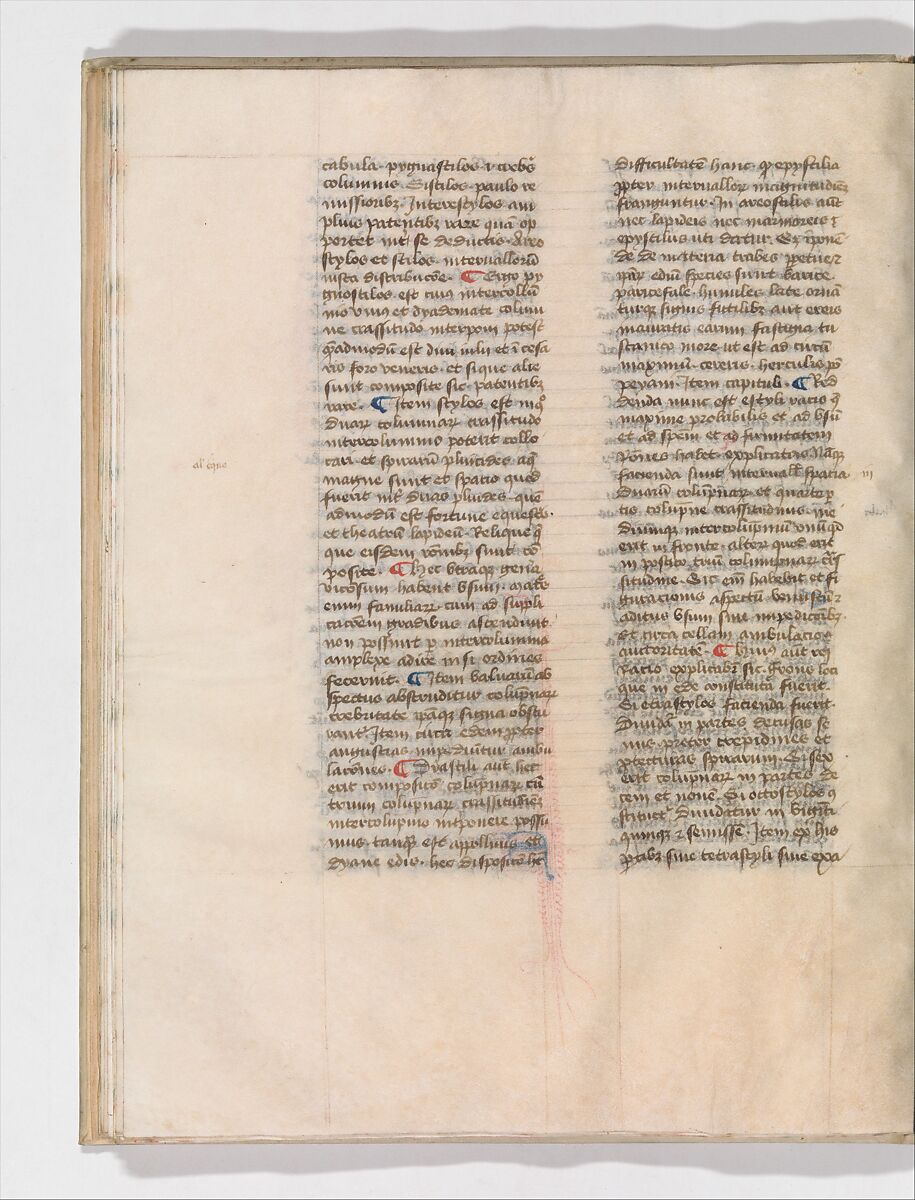 cabula· pygnastilos ⁊ crebꝰ
columnis Sistilos paulo re
missioribꝫ Interestylos am
plius patentibꝫ rare quā op
portet int̄ se deductis· Areo
stylos et stilos· interuallorū
iusta distribucōe· ¶ Ergo py
gnostilos est cuiꝰ intercollū
nio vniꝰ et dyademate colum
ne crassitudo interponi potest
q̄admodū est diui iulii et ī cesa
ris foro veneris· et si que alie
sunt composite sic· patentibꝫ
rare· ¶ Item stylos est inq°
duaꝝ columnaꝝ crassitudo
intercolumnio poterit collo
cari· et spiraꝝ plintides· eq̄
magne sunt et spatio quod
fuerit int̄ duas plintides· que
admodū est fortune equestrꝭ·
et theatrū lapideū· Relique q̄
que eisdem rōnibꝫ sunt cō
posite· ¶ hec vtraqꝫ gn̄a
viciosum habent vsum· matr̄s
enim familiaꝝ cum ad suppli
catōem gradibus ascendunt·
non possunt ꝑ intercolumnia
amplexe adire nisi ordines
fecerint· ¶ Item valuarū as
spectus abstruditur colupnaꝝ
crebritate ipāqꝫ signa obscu
rant᷑ Item circa edem ꝓpter
angustias impediūtur ambu
latōnes· ¶ Dyastili aut̄ hec
erit composito colupnaꝝ cū
trium colupnaꝝ crassitudinē
intercolupnio int̄ponere possu
mus· tanqꝫ est appollinis et
dyane edis· hec disposito h̄t
difficultatē hanc· qꝫ epystilia
ꝓpter interualloꝝ magnitudinē
franguntur· In areostilis aut̄
nec lapideis nec marmoreis ⁊
epystiliis uti datur· Sꝫ īponē
de de materia trabes ꝑpetue ⁊
ip̄aꝝ ediū species sunt barice·
paricefale· humiles late ornā
turqꝫ signis fictilibꝫ aut ereis
inauratis earum fastigia tu
scanico more ut est ad circū
maximū· cereris· herculis pō
peyani· Item capituli· ¶ Red
denda nunc est estyli racio q̄
maxime probabilis et ad vsū
et ad spem et ad firmitatem
rōnes habet explicatas Nāqꝫ
facienda sunt interuall̄ spatia
duarū colūpnaꝝ et quarte ꝑ
tis colupne crassitudinis· me
diumqꝫ intercolūpniū vnū qd̄
erit in fronte alteꝝ quod erit
in postico triū colūmpnaꝝ crās
situdine· Sic em̄ habebit et fi
guracionis aspectū venustū ⁊
aditus vsum sine impedictibꝫ·
et circa cellam ambulacio
auctoritatē· ¶ huiꝰ aut rei
racio explicabit᷑ sic· Frons loci
que in ede constituta fuerit·
Si etrastylos facienda fuerit·
Diuidat᷑ in partes decusas se
mis preter crepidines et
ꝓiecturas spirarum· Si sex
erit colupnaꝝ in partes de
cem et nouē· Si octostylos ɔ
stituet᷑ Diuidatur in viginti
quinqꝫ ⁊ semissē· Item ex his
ꝑtibꝫ siue tetrastyli siue exa